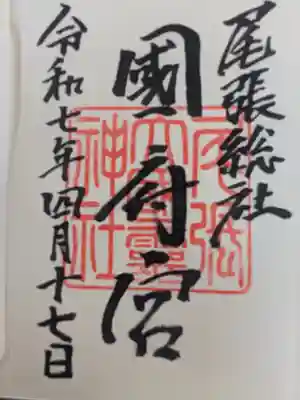 尾張総社
國府宮
令和七年四月十七日
尾張
大國霊
神社